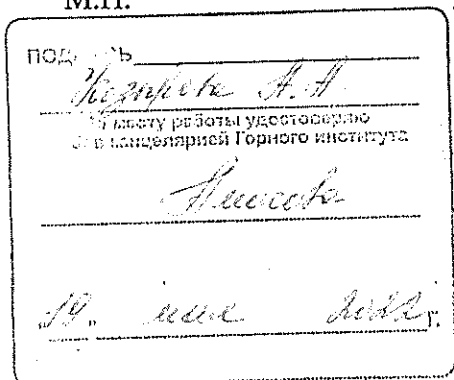 М.П.
ПОДПИСЬ
Козырева А. А.
по месту работы удостоверяю
зав канцелярией Горного института
„19„ мая 2022 г.